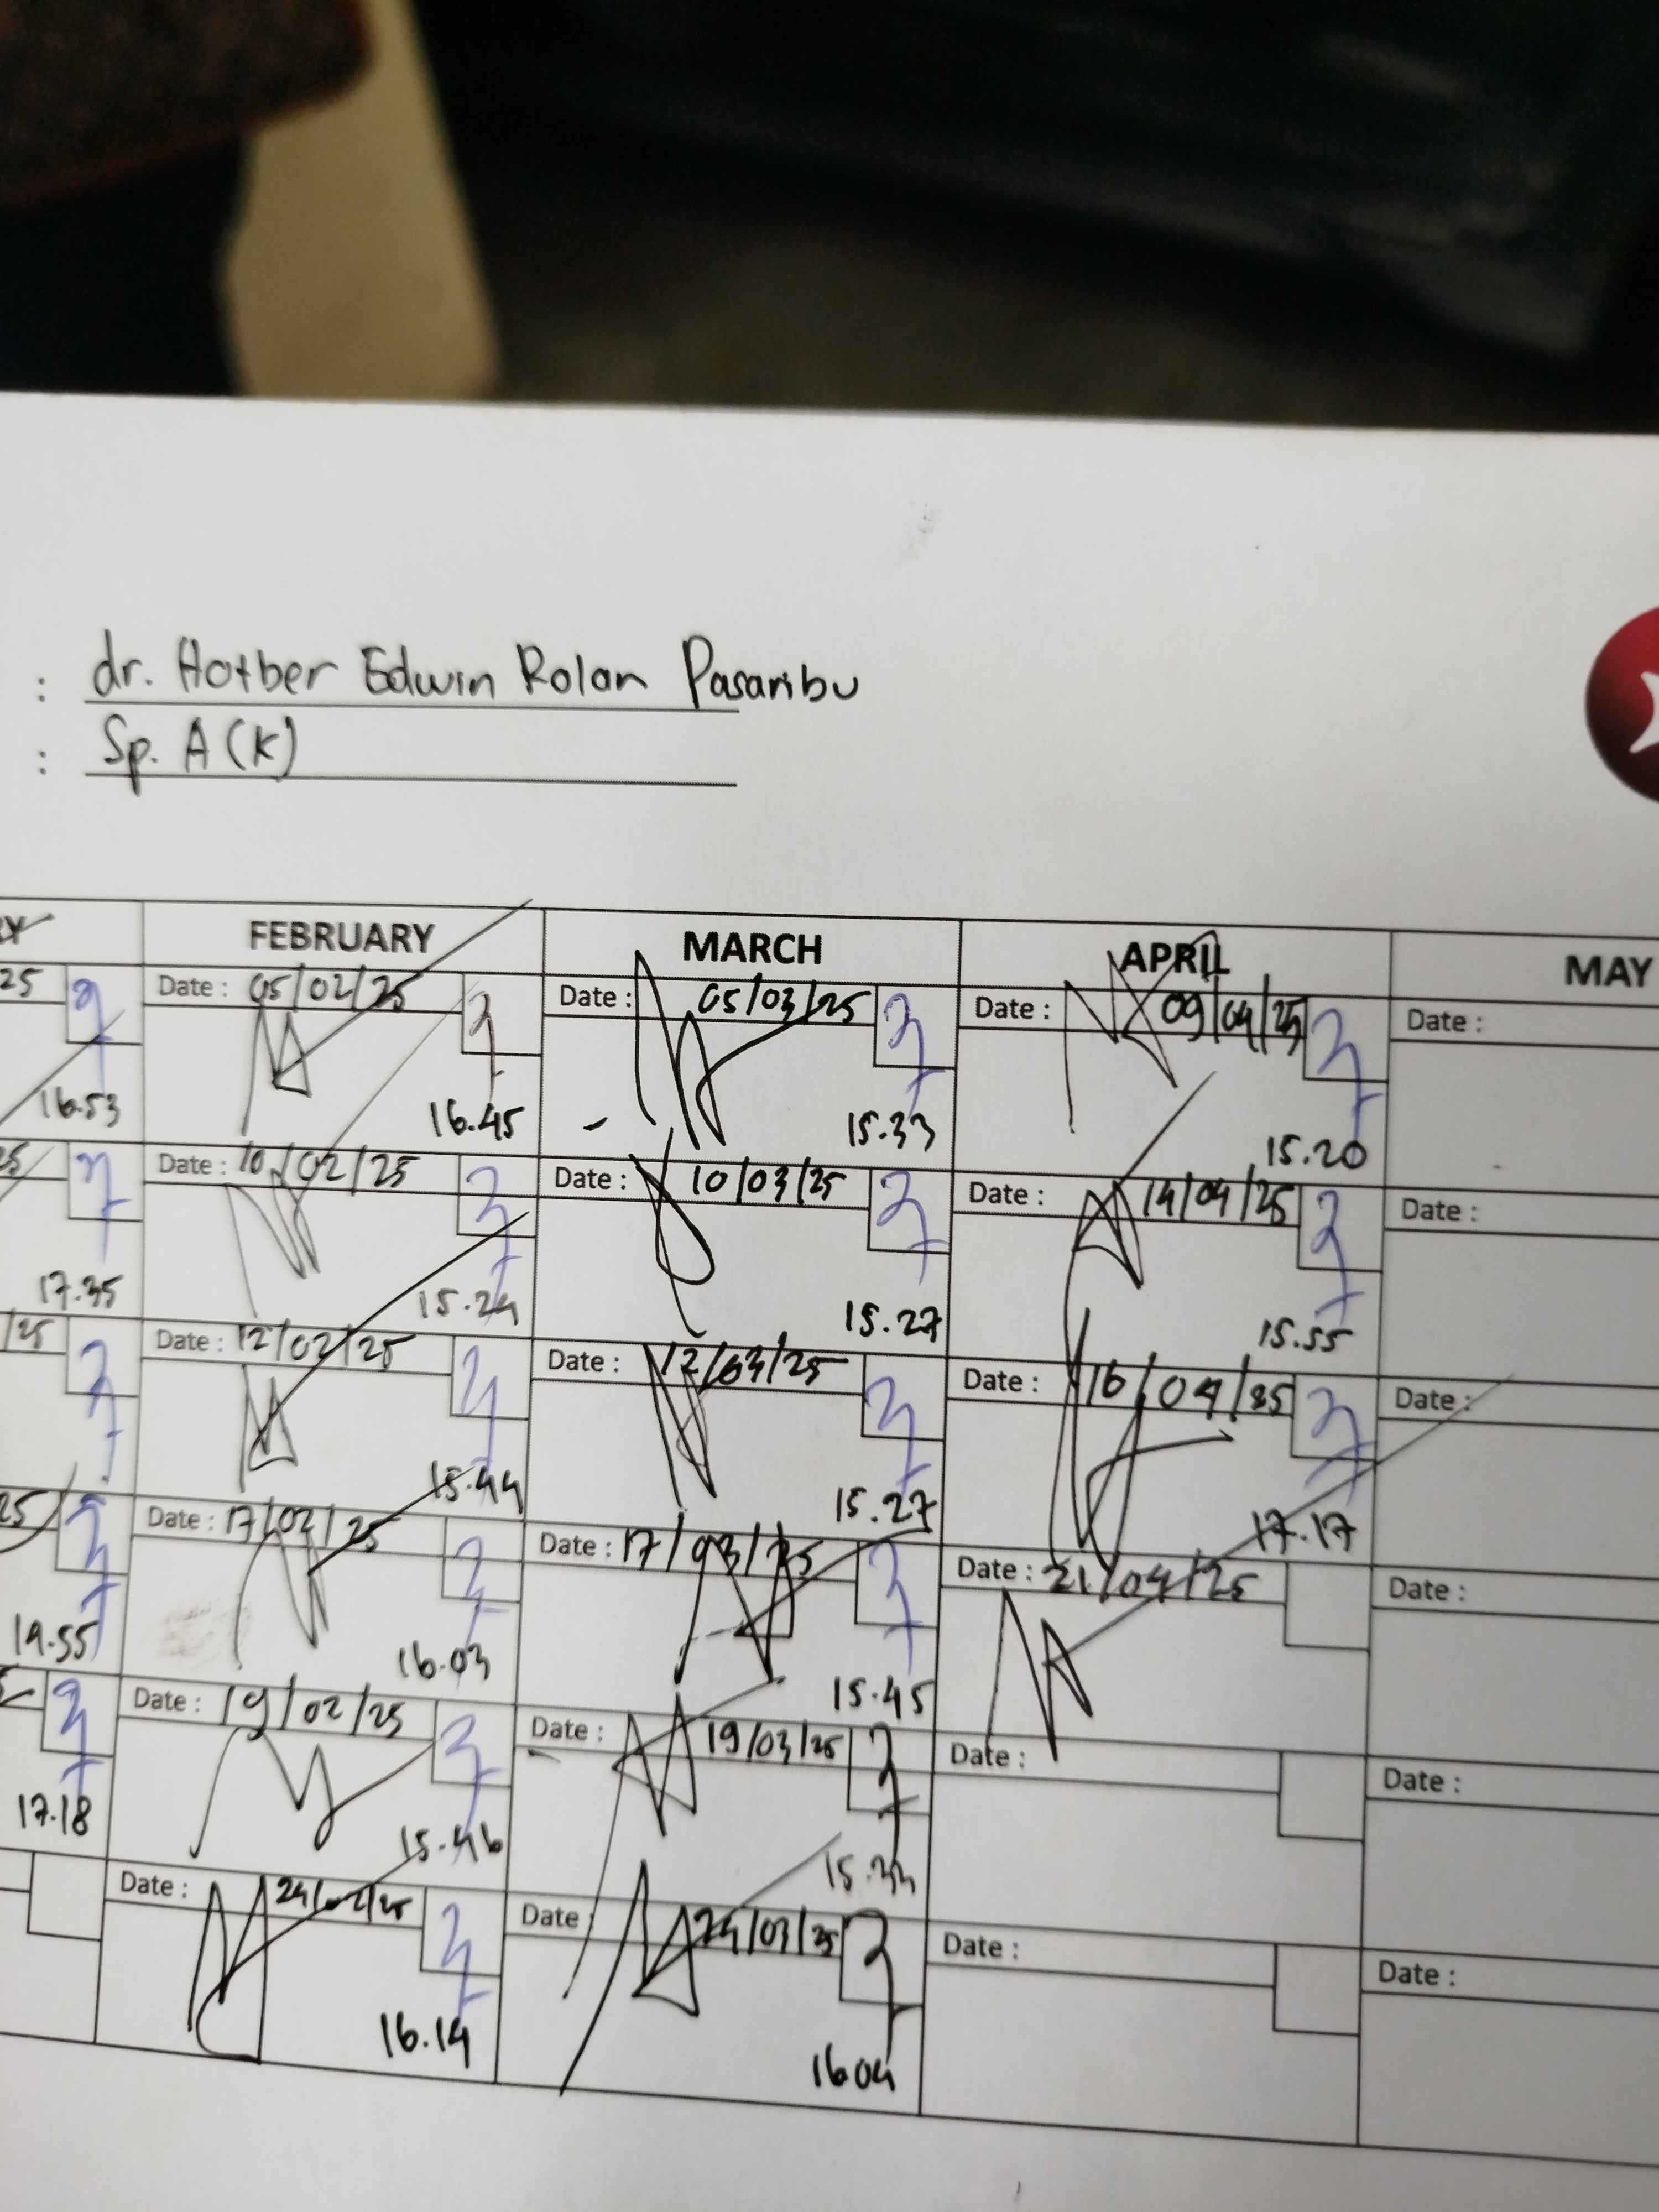 : dr. Hotber Edwin Rolan Pasaribu
: Sp. A (K)
FEBRUARY MARCH APRIL MAY
25 Date : 05/02/25 Date : 05/03/25 Date : 09/04/25 Date :
16.53 16.45 15.33 15.20
25 Date : 10/02/25 Date : 10/03/25 Date : 14/04/25 Date :
17.35 15.24 15.27 15.55
/25 Date : 12/02/25 Date : 12/03/25 Date : 16/04/25 Date :
15.44 15.27 17.17
25 Date : 17/02/25 Date : 17/03/25 Date : 21/04/25 Date :
14.55 16.03 15.45
Date : 19/02/25 Date : 19/03/25 Date : Date :
17.18 15.46 15.33
Date : 24/02/25 Date : 24/03/25 Date : Date :
16.14 16.04